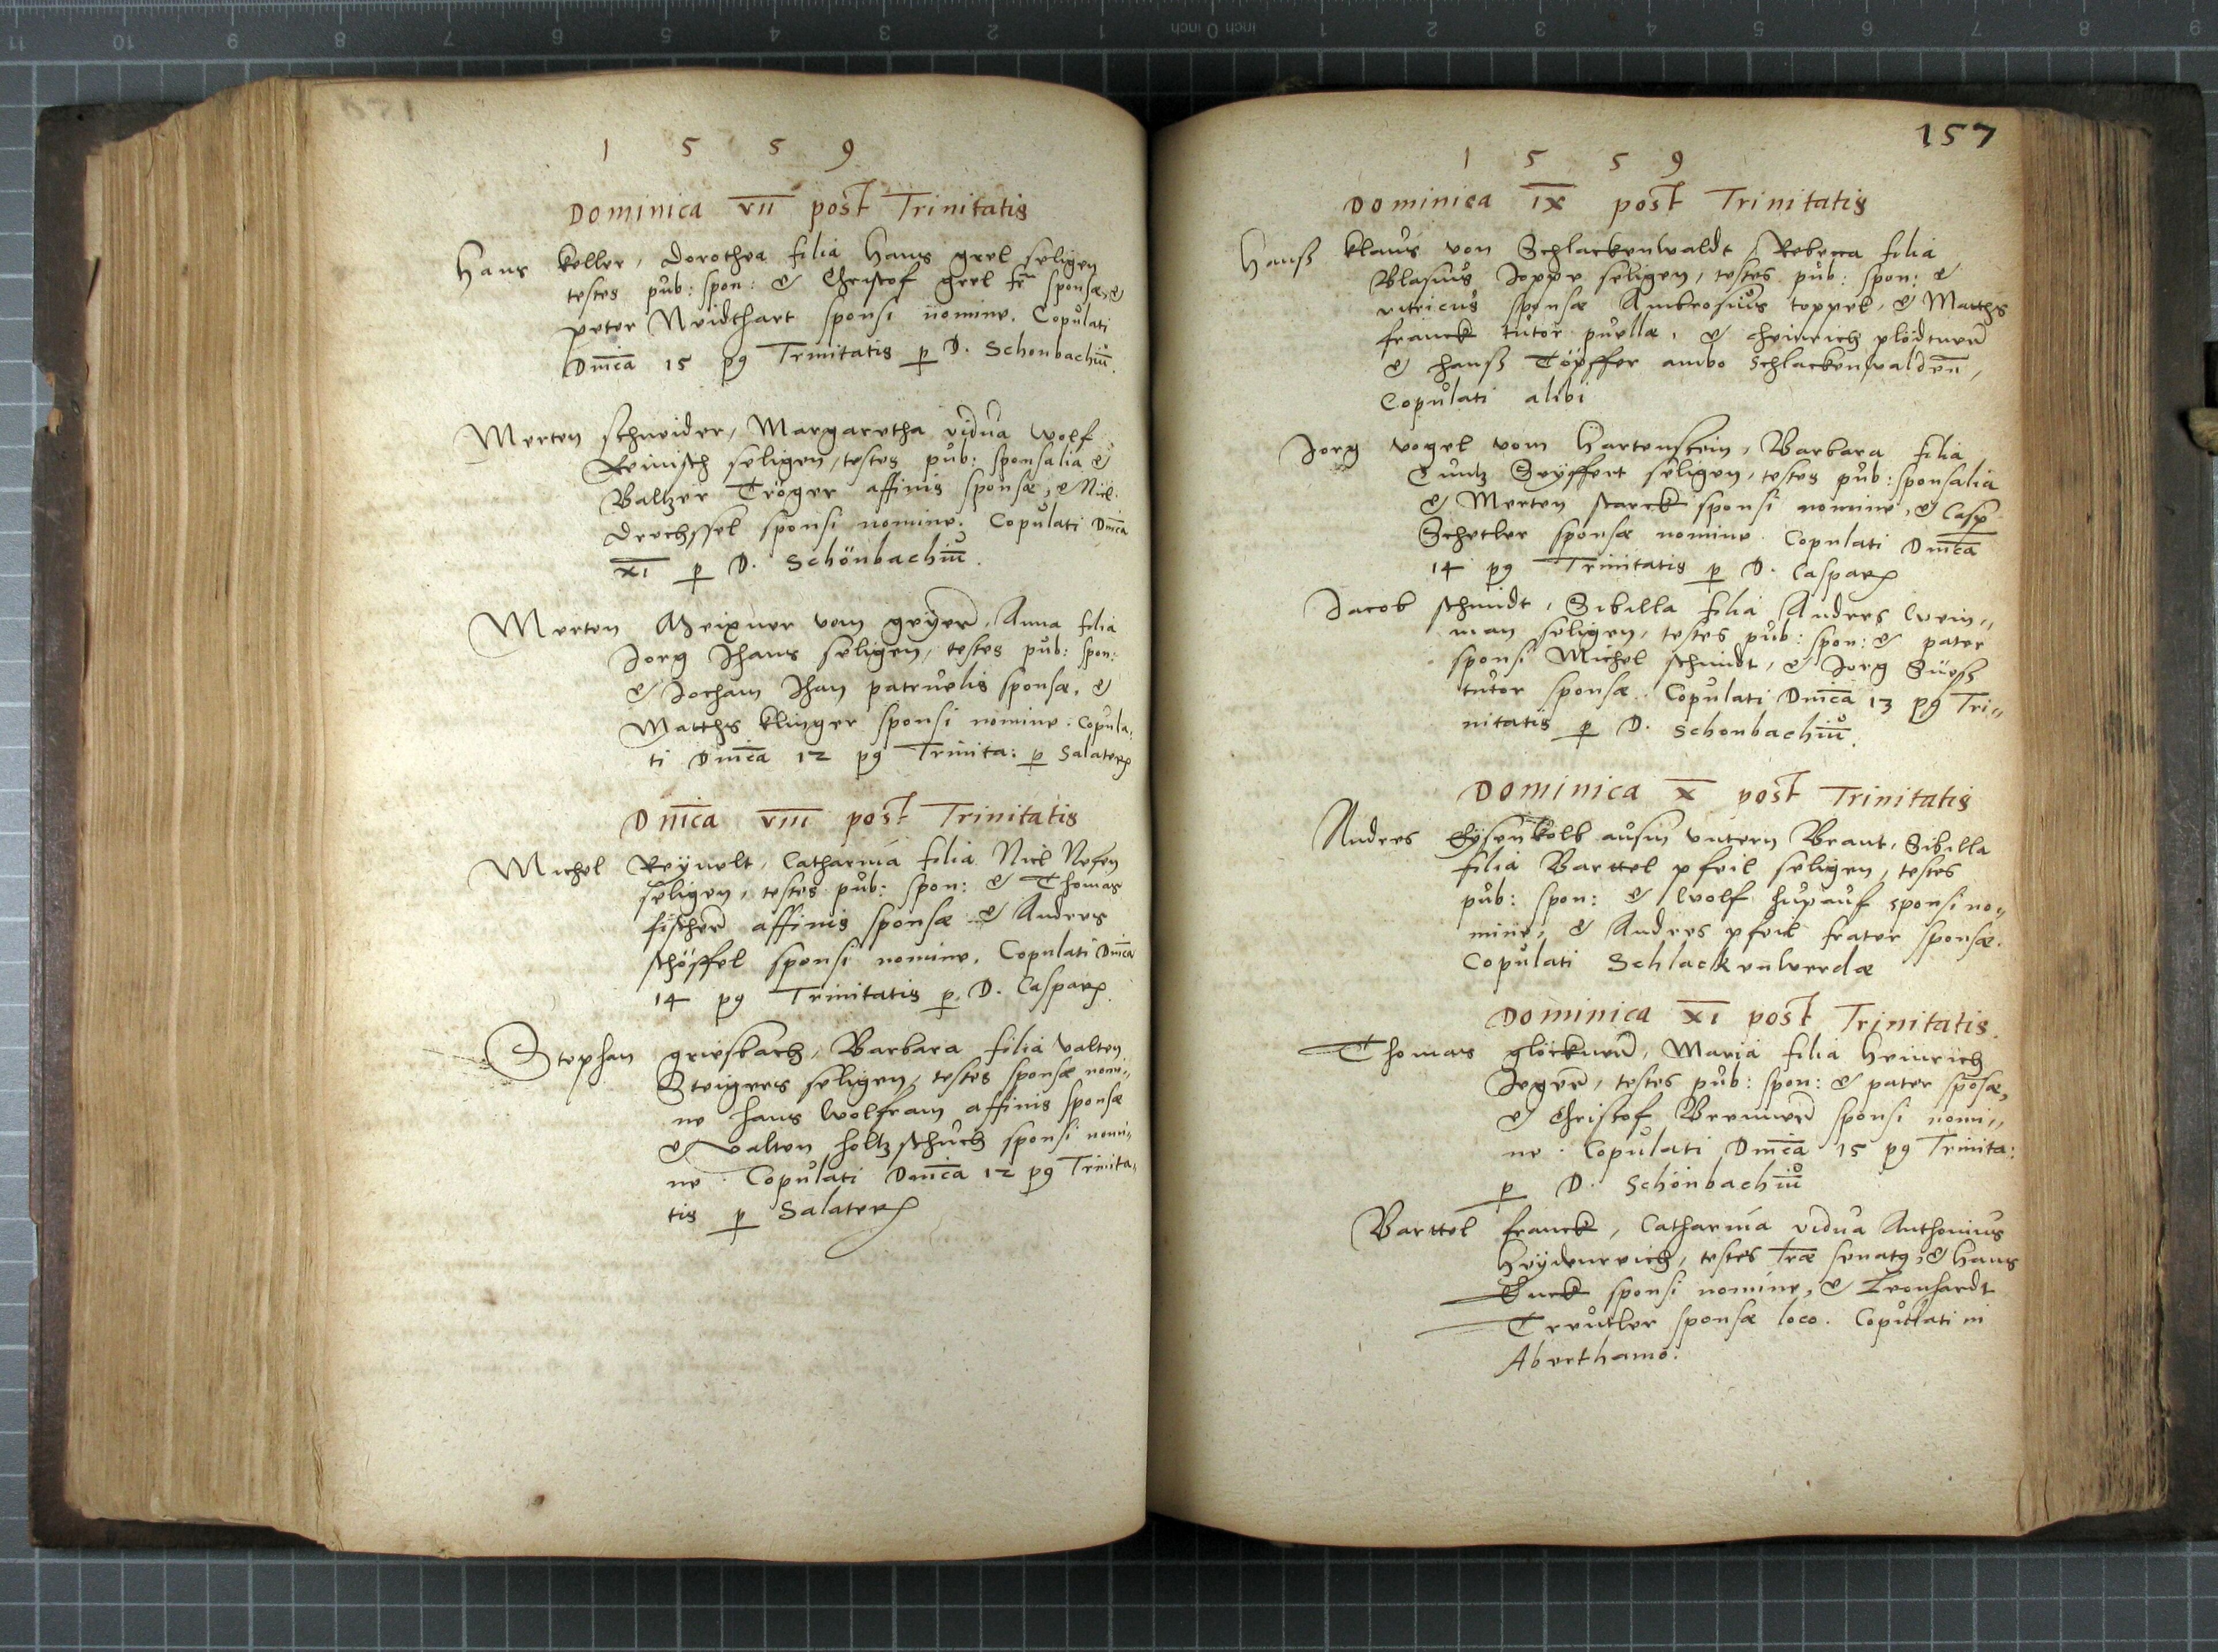 1 5 5 9
Dominica VII post Trinitatis
Hans Keller, Dorothea filia Hans grel seligen
testes pub: spon: & Christof grel fr sponsæ, &
peter Neidthart sponsi nomine. Copulati
Dnica 15 p9 Trinitatis p D. Schonbachiū.
Merten schneider, Margaretha vidua Wolf
Reinisch seligen, testes pub: sponsalia &
Baltzer Tröger affinis sponsæ, & Nicl.
Drechssel sponsi nomine. Copulati Dnica
XI p D. Schönbachiū.
Merten Meixner vom geyer, Anna filia
Jorg Jhans seligen, testes pub: spon:
& Jocham Jhan patruelis sponsæ, &
Matths klinger sponsi nomine. Copula:
ti Dnica 12 p9 Trinita: p Salater
Dnica VIII post Trinitatis
Michel Reynelt, Catharina filia Nicl Nefen
seligen, testes pub: spon: & Thomas
fischer affinis sponsæ & Andres
schöffel sponsi nomine, Copulati Dnica
14 p9 Trinitatis p. D. Caspar
Stephan griesbach, Barbara filia valten
Steigers seligen, testes sponsæ nomi„
ne hans Wolfram affinis sponsæ
& valten holtzschuch sponsi nomi„
ne. Copulati Dnica 12 p9 Trinita„
tis p Salater
157
1 5 5 9
Dominica IX post Trinitatis
Hanß klaus von Schlackenwaldt, Rebecca filia
Blasius Joppe seligen, testes pub: spon: &
vitricus sponsæ Ambrosius toppel, & Matths
franck tutor puellæ, & heinrich plödtner
& hanß Töpffer ambo Schlackenwalden,
Copulati alibi
Jorg vogel vom Hartenstein, Barbara filia
Cuntz Seyffert seligen, testes pub: sponsalia
& Merten starck sponsi nomine, & Casp
Schetler sponsæ nomine. Copulati Dnica
14 p9 Trinitatis p D. Caspar
Jacob schmidt, Sibilla filia Andres Wein„
man seligen, testes pub: spon: & pater
sponsi Michel schmidt, & Jorg Süeß
tutor sponsæ. Copulati Dnica 13 p9 Tri„
nitatis p D. Schonbachiū.
Dominica X post Trinitatis
Andres Eysenkolb ausm untern Brant, Sibilla
filia Barttel pfeil seligen, testes
pub: spon: & Wolf hupauf sponsi no„
mine, & Andres pfeil frater sponsæ.
Copulati Schlackenwerdæ
Dominica XI post Trinitatis.
Thomas glöckner, Maria filia Heinrich
Jeger, testes pub: spon: & pater spōsæ,
& Christof Brenner sponsi nomi„
ne. Copulati Dnica 15 p9 Trinita:
p D. Schönbachiū
Barttel franck, Catharina vidua Anthonius
Heydenreich, testes lræ senat9, & Hans
sponsi nomine, & Leonhardt
Treutler sponsæ loco. Copulati in
Aberthamo.